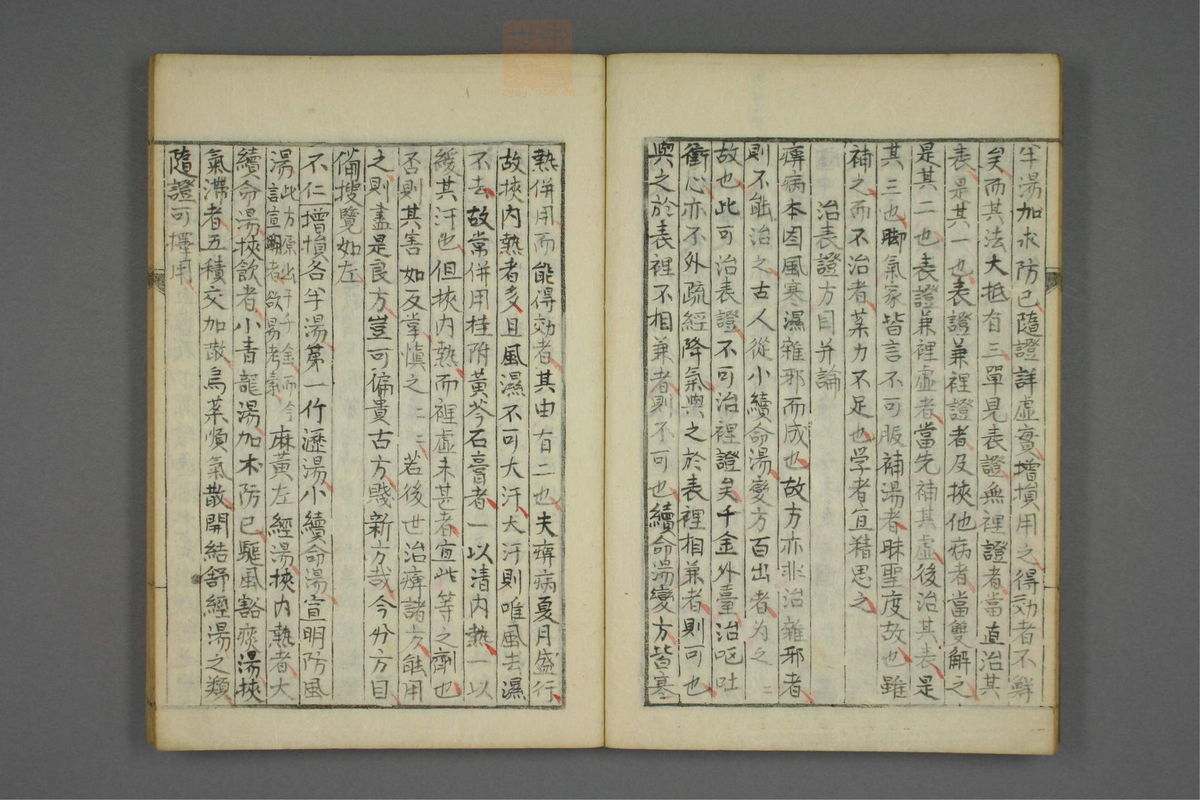 半湯加朮防已隨證詳虛實增損用之得効者不鮮
矣而其法大抵有三單見表證無裡證者當直治其
表是其一也表證兼裡證者及挾他病者當雙解之
是其二也表證兼裡虛者當先補其虛後治其表是
其三也脚氣家皆言不可服補湯者昧聖度故也雖
補之而不治者薬力不足也学者宜精思之
治表證方目并論
痺病本因風寒濕雜邪而成也故方亦非治雜邪者
則不能治之古人從小續命湯變方百出者為之
故也此可治表證不可治裡證矣千金外臺治嘔吐
衝心亦不外疏經降氣與之於表裡相兼者則可也
與之於表裡不相兼者則不可也續命湯變方皆寒
熱併用而能得効者其由有二也夫痺病夏月盛行
故挾内熱者多且風濕不可大汗大汗則唯風去濕
不去故常併用桂附黃芩石膏者一以清内熱一以
緩其汗也但挾内熱而裡虛未甚者宜此等之齊也
否則其害如反掌慎之二二若後世治痺諸方能用
之則盡是良方豈可偏貴古方賤新方哉今分方目
備搜覽如左
不仁一增損各半湯第一竹瀝湯小續命湯宣明防風
湯此方原出于千金而今言宣明者欲易考索麻黃左經湯挾内熱者大
續命湯挾飲者小青龍湯加木防已驅風豁痰湯挾
氣滯者五積交加散烏薬順氣散開結舒經湯之類
隨證可擇用